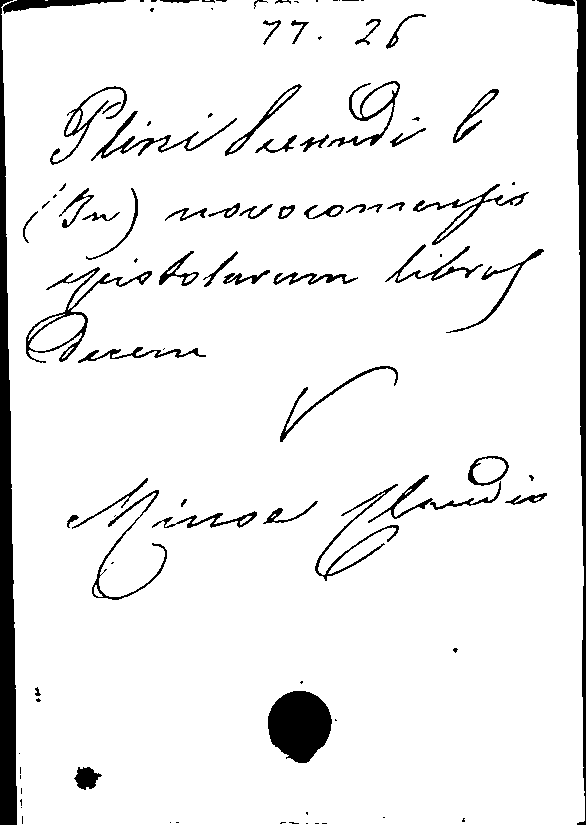 77. 26
Plini Secundi C
(In) novocomensis
epistolarum libros
Decem
V
Minoe Claudio